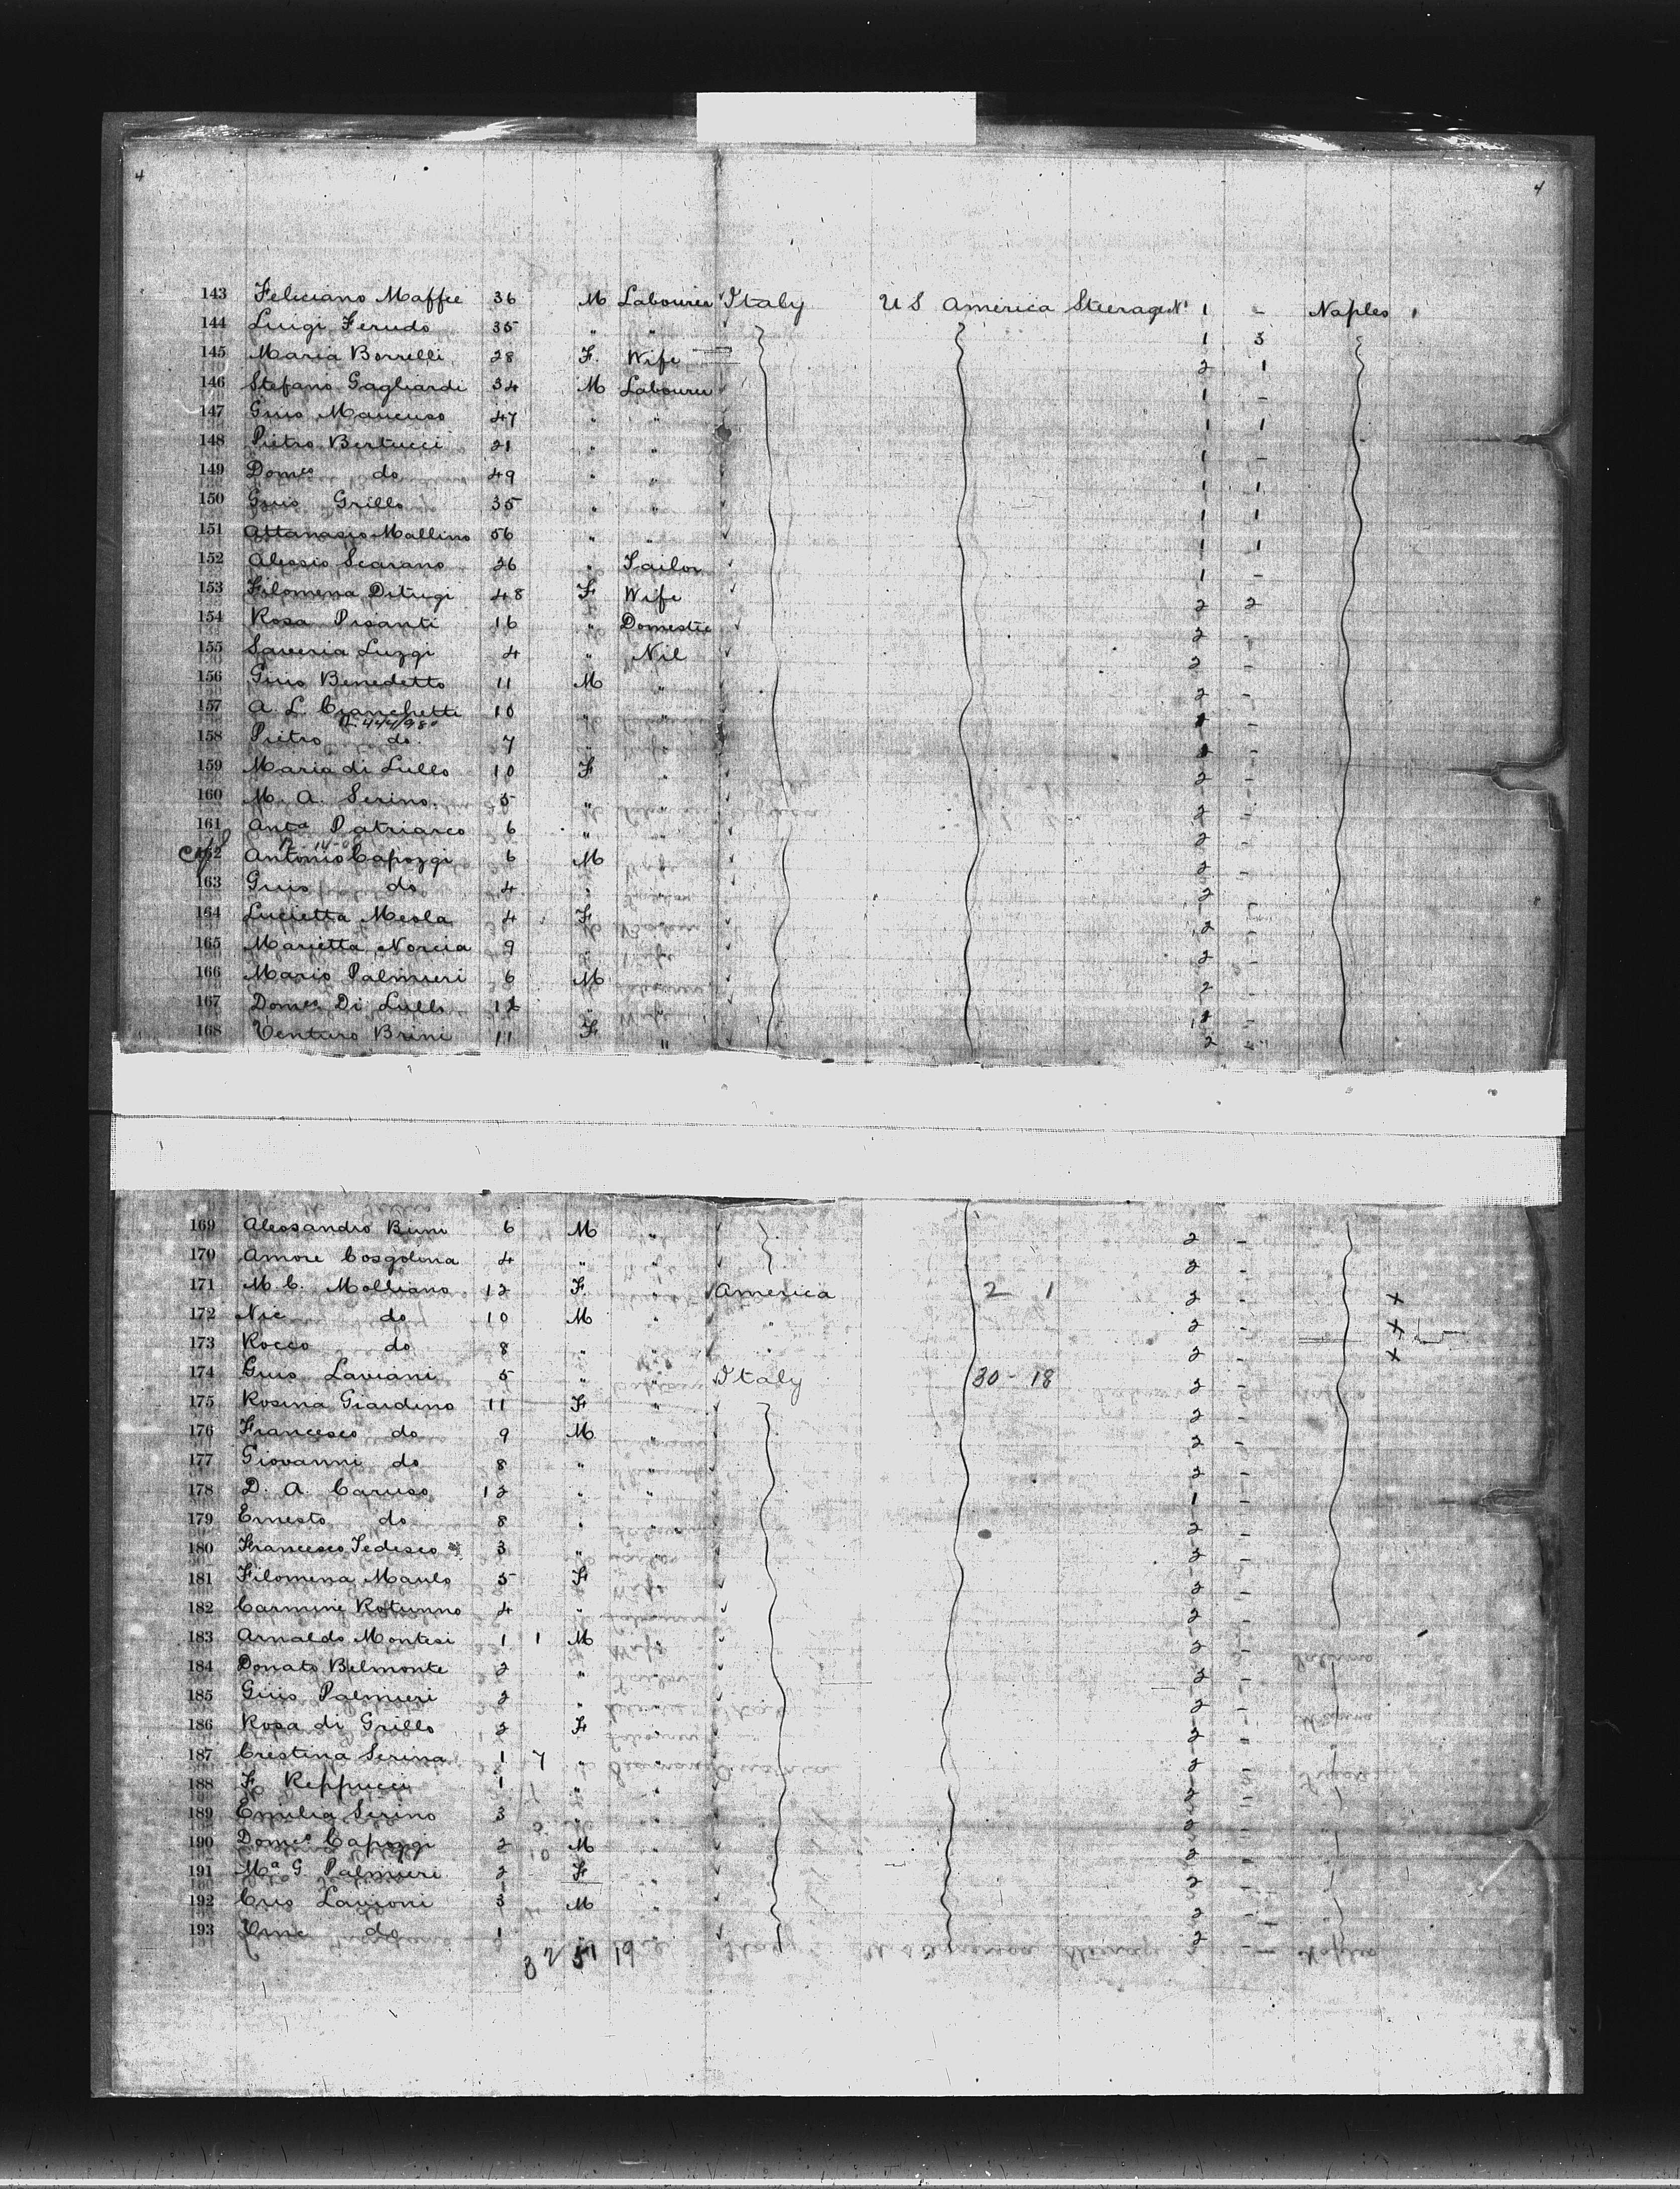 4 4
143 Feliciano Maffee 36 M Labourer Italy U S America Steerage No 1 - Naples
144 Luigi Ferudo 35 " " 1 3
145 Maria Borrelli 28 F. Wife 2 1
146 Stefano Gagliardi 34 M Labourer 1 -
147 Gius Mancuso 47 " " 1 1
148 Pietro Bertucci 21 " " 1 -
149 Domco do 49 " " 1 1
150 Gius Grillo 35 " " 1 1
151 Attanasio Mallino 56 " " 1 1
152 Alessio Scarano 26 " Tailor 1 -
153 Filomena Ditugi 48 F Wife 2 2
154 Rosa Pisanti 16 " Domestic 2 -
155 Saveria Luzzi 4 " Nil 2 -
156 Gius Benedetto 11 M " 2 -
157 A. L. Cianchetti 10 " "
158 Pietro do. 7 " "
159 Maria di Lullo 10 F " 2 -
160 M. A. Serino 5 " " 2 -
161 Anta Patriarco 6 " " 2 -
162 Antonio Capozzi 6 M 2 -
163 Gius do 4 " 2 -
164 Lucietta Meola 4 F 2 -
165 Marietta Norcia 9 2 -
166 Mario Palmieri 6 M 2 -
167 Domco Di Lullo "
168 Venturo Brini 11 F " 2
169 Alessandro Brini 6 M " 2 -
170 Amore Cosgolona 4 " " 2 -
171 M. C. Molliano 12 F. " America 2 1 2 - x
172 Nic do 10 M " " 2 - x
173 Rocco do 8 " " " 2 - x
174 Gius Laviani 5 " " Italy 30 - 18 2 -
175 Rosina Giardino 11 F " 2 -
176 Francesco do 9 M " 2 -
177 Giovanni do 8 " " 2 -
178 D. A. Caruso 12 " " 1 -
179 Ernesto do 8 " " 2 -
180 Francesco Tedesco 3 " " 2 -
181 Filomena Maulo 5 F 2 -
182 Carmine Rotunno 4 " 2 -
183 Arnaldo Montesi 1 1 M " 2 -
184 Donato Belmonte 2 " 2 -
185 Gius Palmieri 2 " 2 -
186 Rosa di Grillo 2 F 2 -
187 Crestina Serina 1 7 " " 2 -
188 F. Reppucci 1 " " 2 -
189 Emilia Serino 3 " " 2 -
190 Domco Capozzi 2 M " 2 -
191 Ma G. Palmieri 2 F " 2 -
192 Cris Lavioni 3 M " 2 -
193 do 1 2 -
19